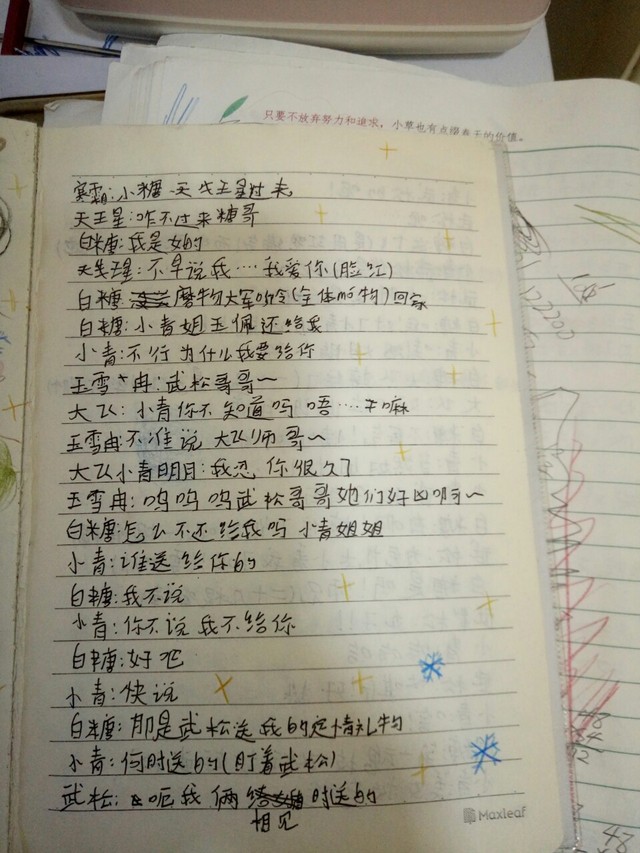 只要不放弃努力和追求，小草也有点缀春天的价值。
寒霜:小糖 天戈王星过来
天王星:咋不过来糖哥
白糖:我是女的
天王星:不早说我…我爱你(脸红)
白糖 魔物大军听令(全体魔物)回家
白糖:小青姐玉佩还给我
小青:不行 为什么我要给你
玉雪冉:武松哥哥~
大飞:小青你不知道吗 唔…干嘛
玉雪冉不准说 大飞师哥~
大飞小青明月:我忍你很久了
玉雪冉:呜呜呜武松哥哥她们好凶啊~
白糖:怎么不还给我吗 小青姐姐
小青:谁送给你的
白糖:我不说
小青:你不说我不给你
白糖:好吧
小青:快说
白糖:那是武松送我的定情礼物
小青:何时送的(盯着武松)
武松:呃我俩相见时送的
Maxleaf